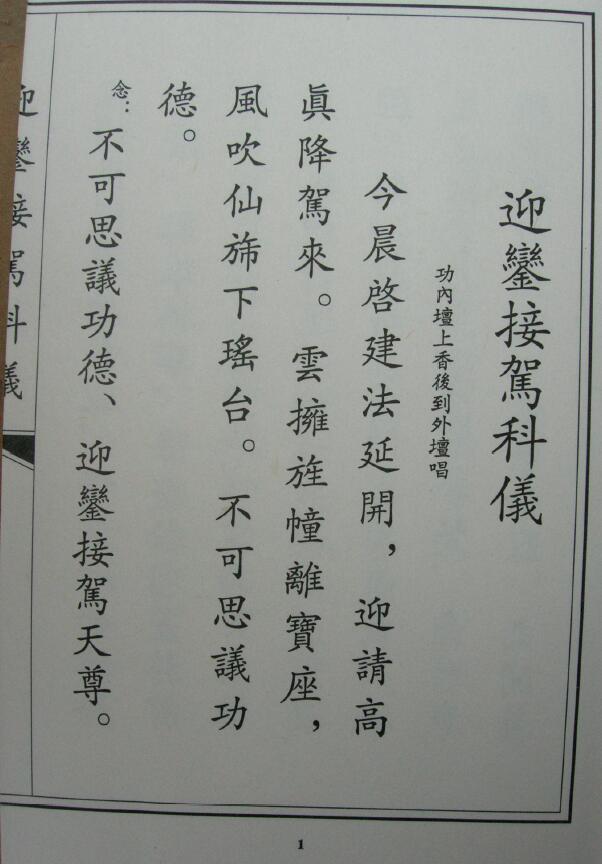 迎鑾接駕科儀
功內壇上香後到外壇唱
今晨啓建法延開，迎請高
眞降駕來。雲擁旌幢離寶座，
風吹仙斾下瑤台。不可思議功
德。
念：不可思議功德、迎鑾接駕天尊。
迎鑾接駕科儀
1